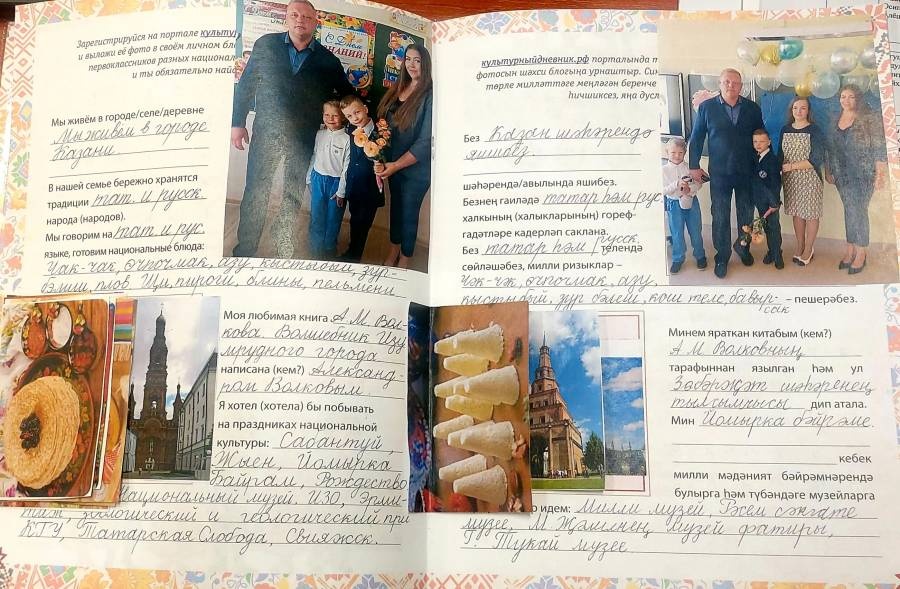 Зарегистрируйся на портале культур
и выложи её фото в своём личном бло
первоклассников разных национал
и ты обязательно най
С Днём
ЗНАНИЙ!
Мы живём в городе/селе/деревне
Мы живём в городе
Казани.
В нашей семье бережно хранятся
традиции тат. и русск.
народа (народов).
Мы говорим на тат. и рус.
языке, готовим национальные блюда:
Чак-чак, өчпочмак, азу, кыстыбый, зур-
бэлиш, плов. Щи, пироги, блины, пельмени
Моя любимая книга А. М. Вол-
кова. Волшебник Изу
мрудного города
написана (кем?) Александ-
ром Волковым.
Я хотел (хотела) бы побывать
на праздниках национальной
культуры: Сабантуй,
Жыен, Йомырка
Байрам, Рождество
Национальный музей, ИЗО, Эрми-
таж, зоологический и геологический при
КГУ, Татарская Слобода, Свияжск.
культурныйдневник.рф порталында т
фотосын шәхси блогыңа урнаштыр. Син
төрле милләттәге меңләгән беренче
һичшиксез, яңа дусл
Без Казан шәһәрендә
яшибез.
шәһәрендә/авылында яшибез.
Безнең гаиләдә татар һәм рус
халкының (халыкларының) гореф-
гадәтләре кадерләп саклана.
Без татар һәм русск. телендә
сөйләшәбез, милли ризыклар –
Чәк-чәк, өчпочмак, азу,
кыстыбый, зур бәлеш, кош теле, бавыр- – пешерәбез.
сак
Минем яраткан китабым (кем?)
А М Волковның
тарафыннан язылган һәм ул
Зөбәрҗәт шәһәренең
тылсымчысы дип атала.
Мин Йомырка бәйрәме.
кебек
милли мәдәният бәйрәмнәрендә
булырга һәм түбәндәге музейларга
идем: Милли музей, Рәсем сәнгате
музее, М. Җәлилнең музей фатиры,
Г. Тукай музее.